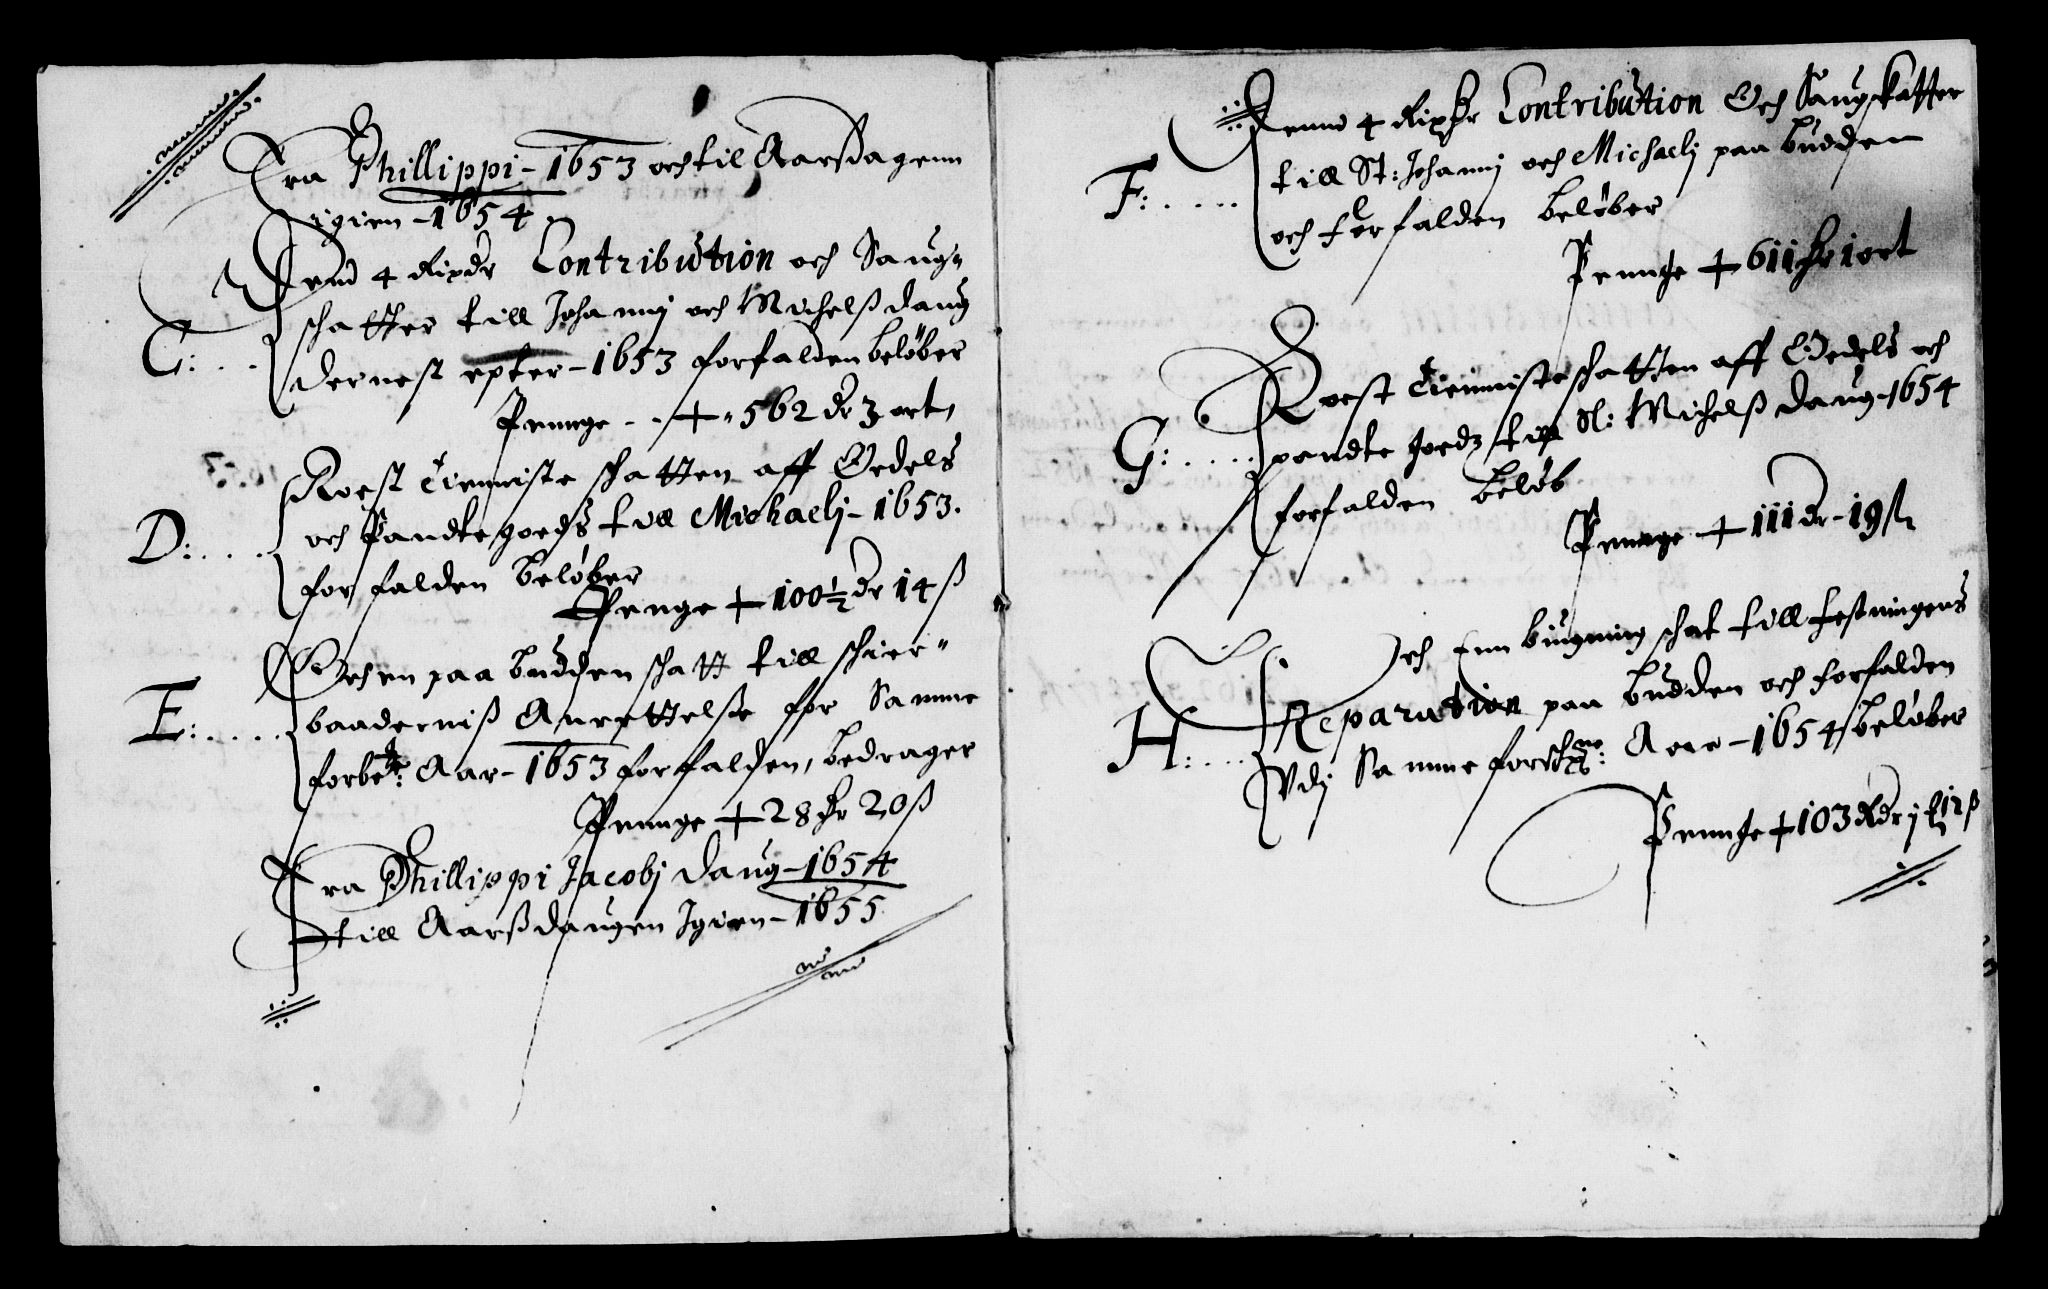 Fra Phillippi - 1653 och til Aarsdagenn
igien - 1654
Dend 4 Rixdr Contribution och Saug„
C: . . . schatter till Johannj och Michelß daug
dernest epter - 1653 forfalden beløber
Pennge - . + „ 562 dr 3 ort,
Roest tienniste schatten aff Oedels
D: . . . . och Pandte goedß till Michaelj - 1653.
forfalden beløber
Penge + 100½ dr 14 ß
Och en paa budden schatt till schier„
E: . . . . baaderniß Anrettelse for Samme
forbete: Aar - 1653 forfalden, bedrager
Pennge + 28 dr 20 ß
Fra Phillippi Jacobj daug - 1654
till Aarßdaugen Igien - 1655
Denne 4 Rixdr Contribution Och Saugskatter
F: . . . . . till St: Johannj och Michaelj paa budden
och forfalden beløber
Pennge + 611 dr 1 ort
Roest tienniste schatten aff Oedels och
G: . . . . . pandte goedz till St: Michelß daug - 1654
forfalden beløb
Pennge + 111 dr - 19 ß
Och Enn bugning schat till festningens
H: . . . . Reparation paa budden och forfalden
Vdj Samme forschne: Aar - 1654 beløber
Pennge + 103 Rdr j 12 ß